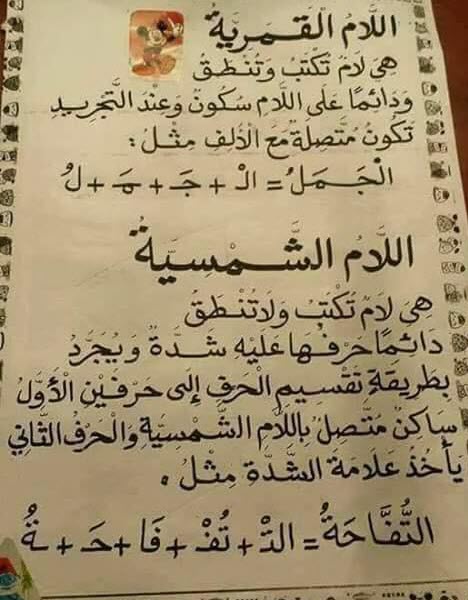 اللَّامُ الْقَمَرِيَّةُ
هِيَ لَامٌ تُكْتَبُ وَتُنْطَقُ
وَدَائِمًا عَلَى اللَّامِ سُكُونٌ وَعِنْدَ التَّجْرِيدِ
تَكُونُ مُتَّصِلَةً مَعَ الْأَلِفِ مِثْلُ :
الْجَمَلُ = الْـ + جَـ + مَـ + لُ
اللَّامُ الشَّمْسِيَّةُ
هِيَ لَامٌ تُكْتَبُ وَلَا تُنْطَقُ
دَائِمًا حَرْفُهَا عَلَيْهِ شَدَّةٌ وَيُجَرَّدُ
بِطَرِيقَةِ تَقْسِيمِ الْحَرْفِ إِلَى حَرْفَيْنِ الْأَوَّلُ
سَاكِنٌ مُتَّصِلٌ بِاللَّامِ الشَّمْسِيَّةِ وَالْحَرْفُ الثَّانِي
يَأْخُذُ عَلَامَةَ الشَّدَّةِ مِثْلُ .
التُّفَّاحَةُ = التْـ + تُفْـ + فَا + حَـ + ـةُ